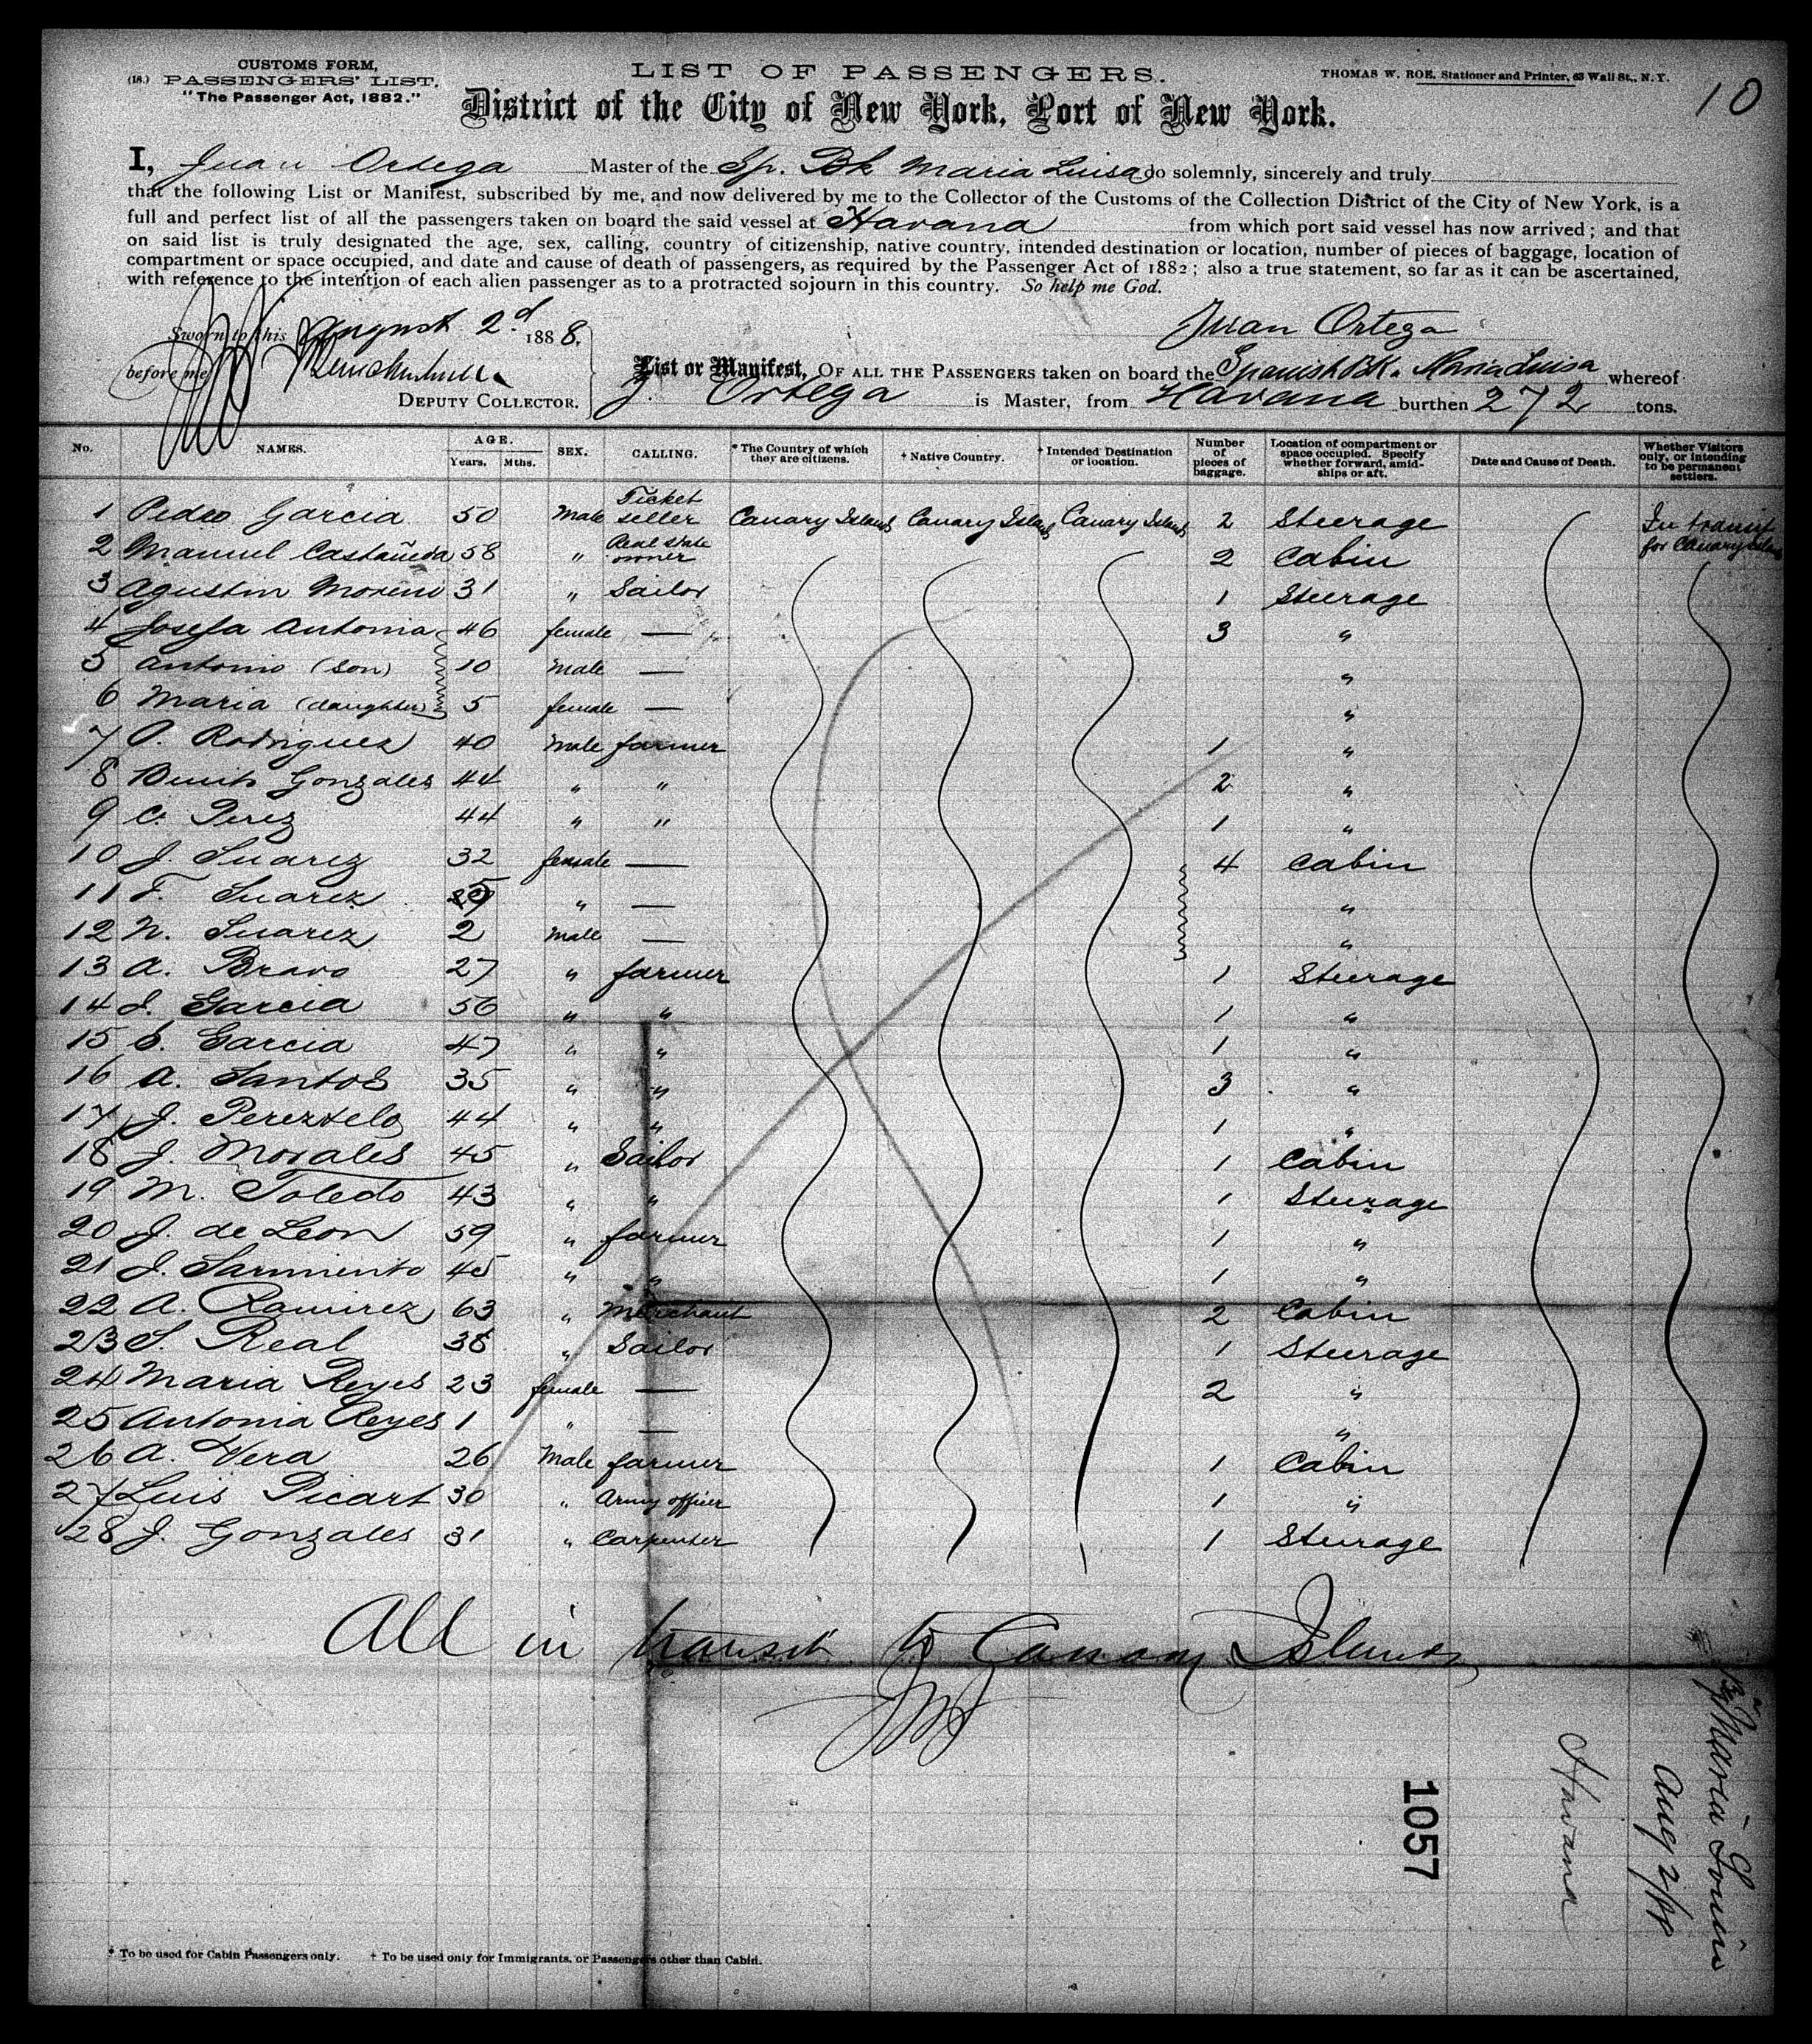 CUSTOMS FORM,
(18.) PASSENGERS' LIST.
"The Passenger Act, 1882."
LIST OF PASSENGERS.
THOMAS W. ROE, Stationer and Printer, 63 Wall St., N.Y.
10
District of the City of New York, Port of New York.
I, Juan Ortega Master of the Sp. Bk Maria Luisa do solemnly, sincerely and truly
that the following List or Manifest, subscribed by me, and now delivered by me to the Collector of the Customs of the Collection District of the City of New York, is a
full and perfect list of all the passengers taken on board the said vessel at Havana from which port said vessel has now arrived; and that
on said list is truly designated the age, sex, calling, country of citizenship, native country, intended destination or location, number of pieces of baggage, location of
compartment or space occupied, and date and cause of death of passengers, as required by the Passenger Act of 1882; also a true statement, so far as it can be ascertained,
with reference to the intention of each alien passenger as to a protracted sojourn in this country. So help me God.
Sworn to this August 2d 1888,
Juan Ortega
before me
DEPUTY COLLECTOR.
List or Manifest, OF ALL THE PASSENGERS taken on board the Spanish Bk. Maria Luisa whereof
J. Ortega is Master, from Havana burthen 272 tons.
No. NAMES. AGE. Years. Mths. SEX. CALLING. * The Country of which they are citizens. † Native Country. † Intended Destination or location. Number of pieces of baggage. Location of compartment or space occupied. Specify whether forward, amidships or aft. Date and Cause of Death. Whether Visitors only, or intending to be permanent settlers.
1 Pedro Garcia 50 Male Ticket seller Canary Islands Canary Islands Canary Islands 2 Steerage In transit for Canary Islands
2 Manuel Castañeda 58 " Real state owner 2 Cabin
3 Agustin Moreno 31 " Sailor 1 Steerage
4 Josefa Antonia 46 female — 3 "
5 Antonio (son) 10 Male — "
6 Maria (daughter) 5 female — "
7 O. Rodriguez 40 Male farmer 1 "
8 Benito Gonzales 44 " " 2 "
9 C. Perez 44 " " 1 "
10 J. Suarez 32 female — 4 Cabin
11 F. Suarez " — "
12 N. Suarez 2 Male — "
13 A. Bravo 27 " farmer 1 Steerage
14 J. Garcia 56 " " 1 "
15 S. Garcia 47 " " 1 "
16 A. Santos 35 " " 3 "
17 J. Pereztelo 44 " " 1 "
18 J. Morales 45 " Sailor 1 Cabin
19 M. Toledo 43 " " 1 Steerage
20 J. de Leon 59 " farmer 1 "
21 J. Sarmiento 45 " " 1 "
22 A. Ramirez 63 " Merchant 2 Cabin
23 S. Real 38 " Sailor 1 Steerage
24 Maria Reyes 23 female — 2 "
25 Antonia Reyes 1 " — "
26 A. Vera 26 Male farmer 1 Cabin
27 Luis Picart 30 " Army officer 1 "
28 J. Gonzales 31 " Carpenter 1 Steerage
All in transit to Canary Islands
1057
Havana
Aug 2/88
Maria Louisa
* To be used for Cabin Passengers only. † To be used only for Immigrants, or Passengers other than Cabin.